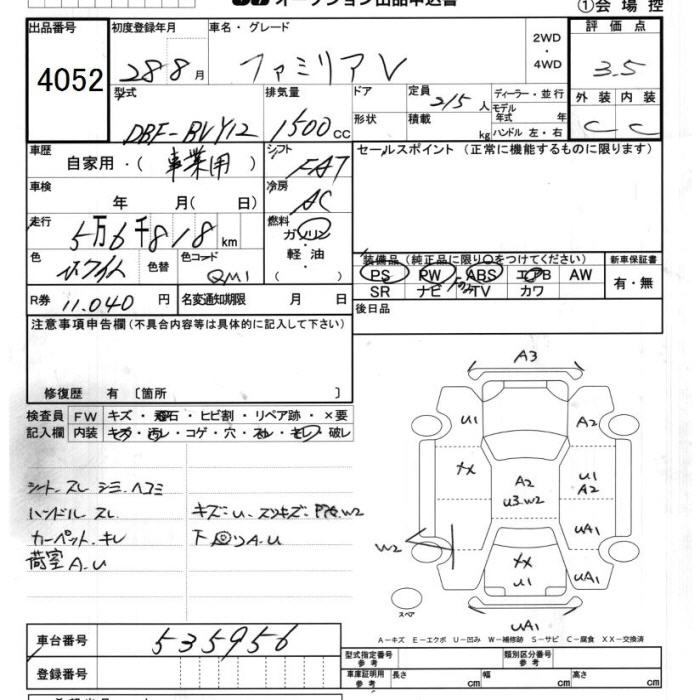 オークション出品申込書
①会場控
出品番号 4052
初度登録年月 28 8月
車名・グレード ファミリアV
2WD ・ 4WD
評価点 3.5
型式 DBF-BVY12
排気量 1500cc
ドア
形状
定員 2/5人
積載 kg
ディーラー・並行
モデル年式 年
ハンドル 左・右
外装 C
内装 C
車歴 自家用・(事業用)
シフト FAT
セールスポイント(正常に機能するものに限ります)
車検 年 月( 日)
冷房 AC
走行 5万6千818km
燃料 ガソリン・軽油
色 ホワイト 色替
色コード QM1
装備品(純正品に限り○をつけてください)
PS PW ABS エアB AW
SR ナビ TV カワ
新車保証書 有・無
R券 11.040円
名変通知期限 月 日
後日品
注意事項申告欄(不具合内容等は具体的に記入して下さい)
修復歴 有〔箇所 〕
検査員記入欄
FW キズ・飛石・ヒビ割・リペア跡・×要
内装 キズ・汚レ・コゲ・穴・スレ・キレ・破レ
シート.スレ シミ.ヘコミ
ハンドル スレ
カーペット.キレ
荷室A.U
下回りA.U
A3
U1
A2
XX
A2
U3.W2
U1
A2
UA1
W2
XX
U1
UA1
UA1
スペア
A－キズ E－エクボ U－凹み W－補修跡 S－サビ C－腐食 XX－交換済
車台番号 535956
登録番号
型式指定番号 参考
類別区分番号 参考
車庫証明用 参考 長さ cm 幅 cm 高さ cm